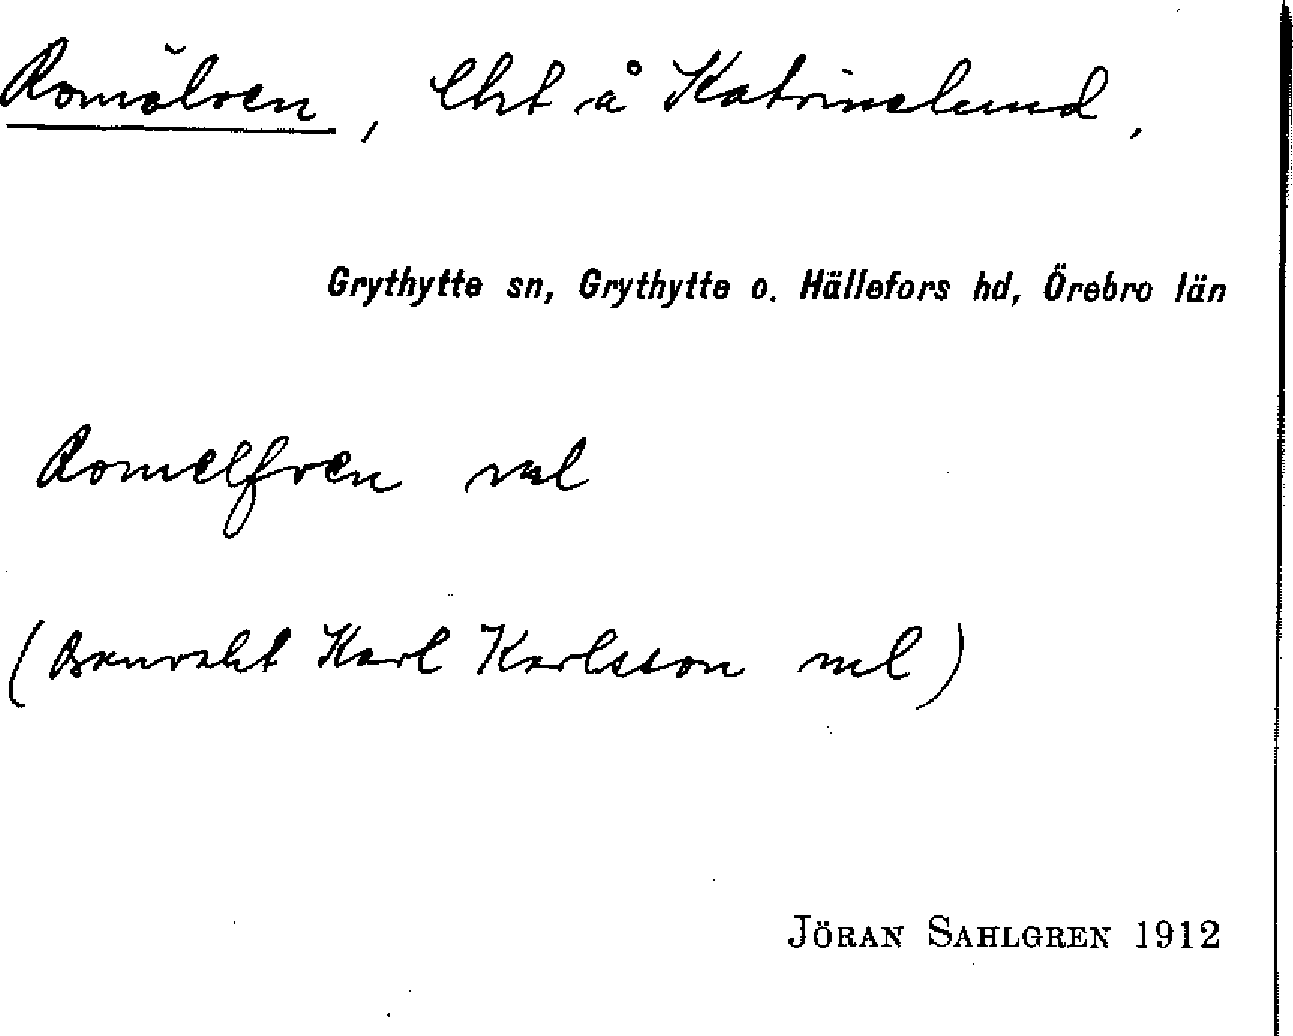 Romälven, lht å Katrinelund,
Grythytte sn, Grythytte o. Hällefors hd, Örebro län
Romelfven ml
(Banvakt Karl Karlsson ml)
JÖRAN SAHLGREN 1912